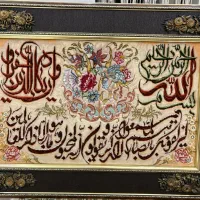 بسم الله الرحمن الرحيم
وان يكاد الذين كفروا
ليزلقونك بابصارهم لما سمعوا الذكر ويقولون انه لمجنون وما هو الا ذكر للعالمين